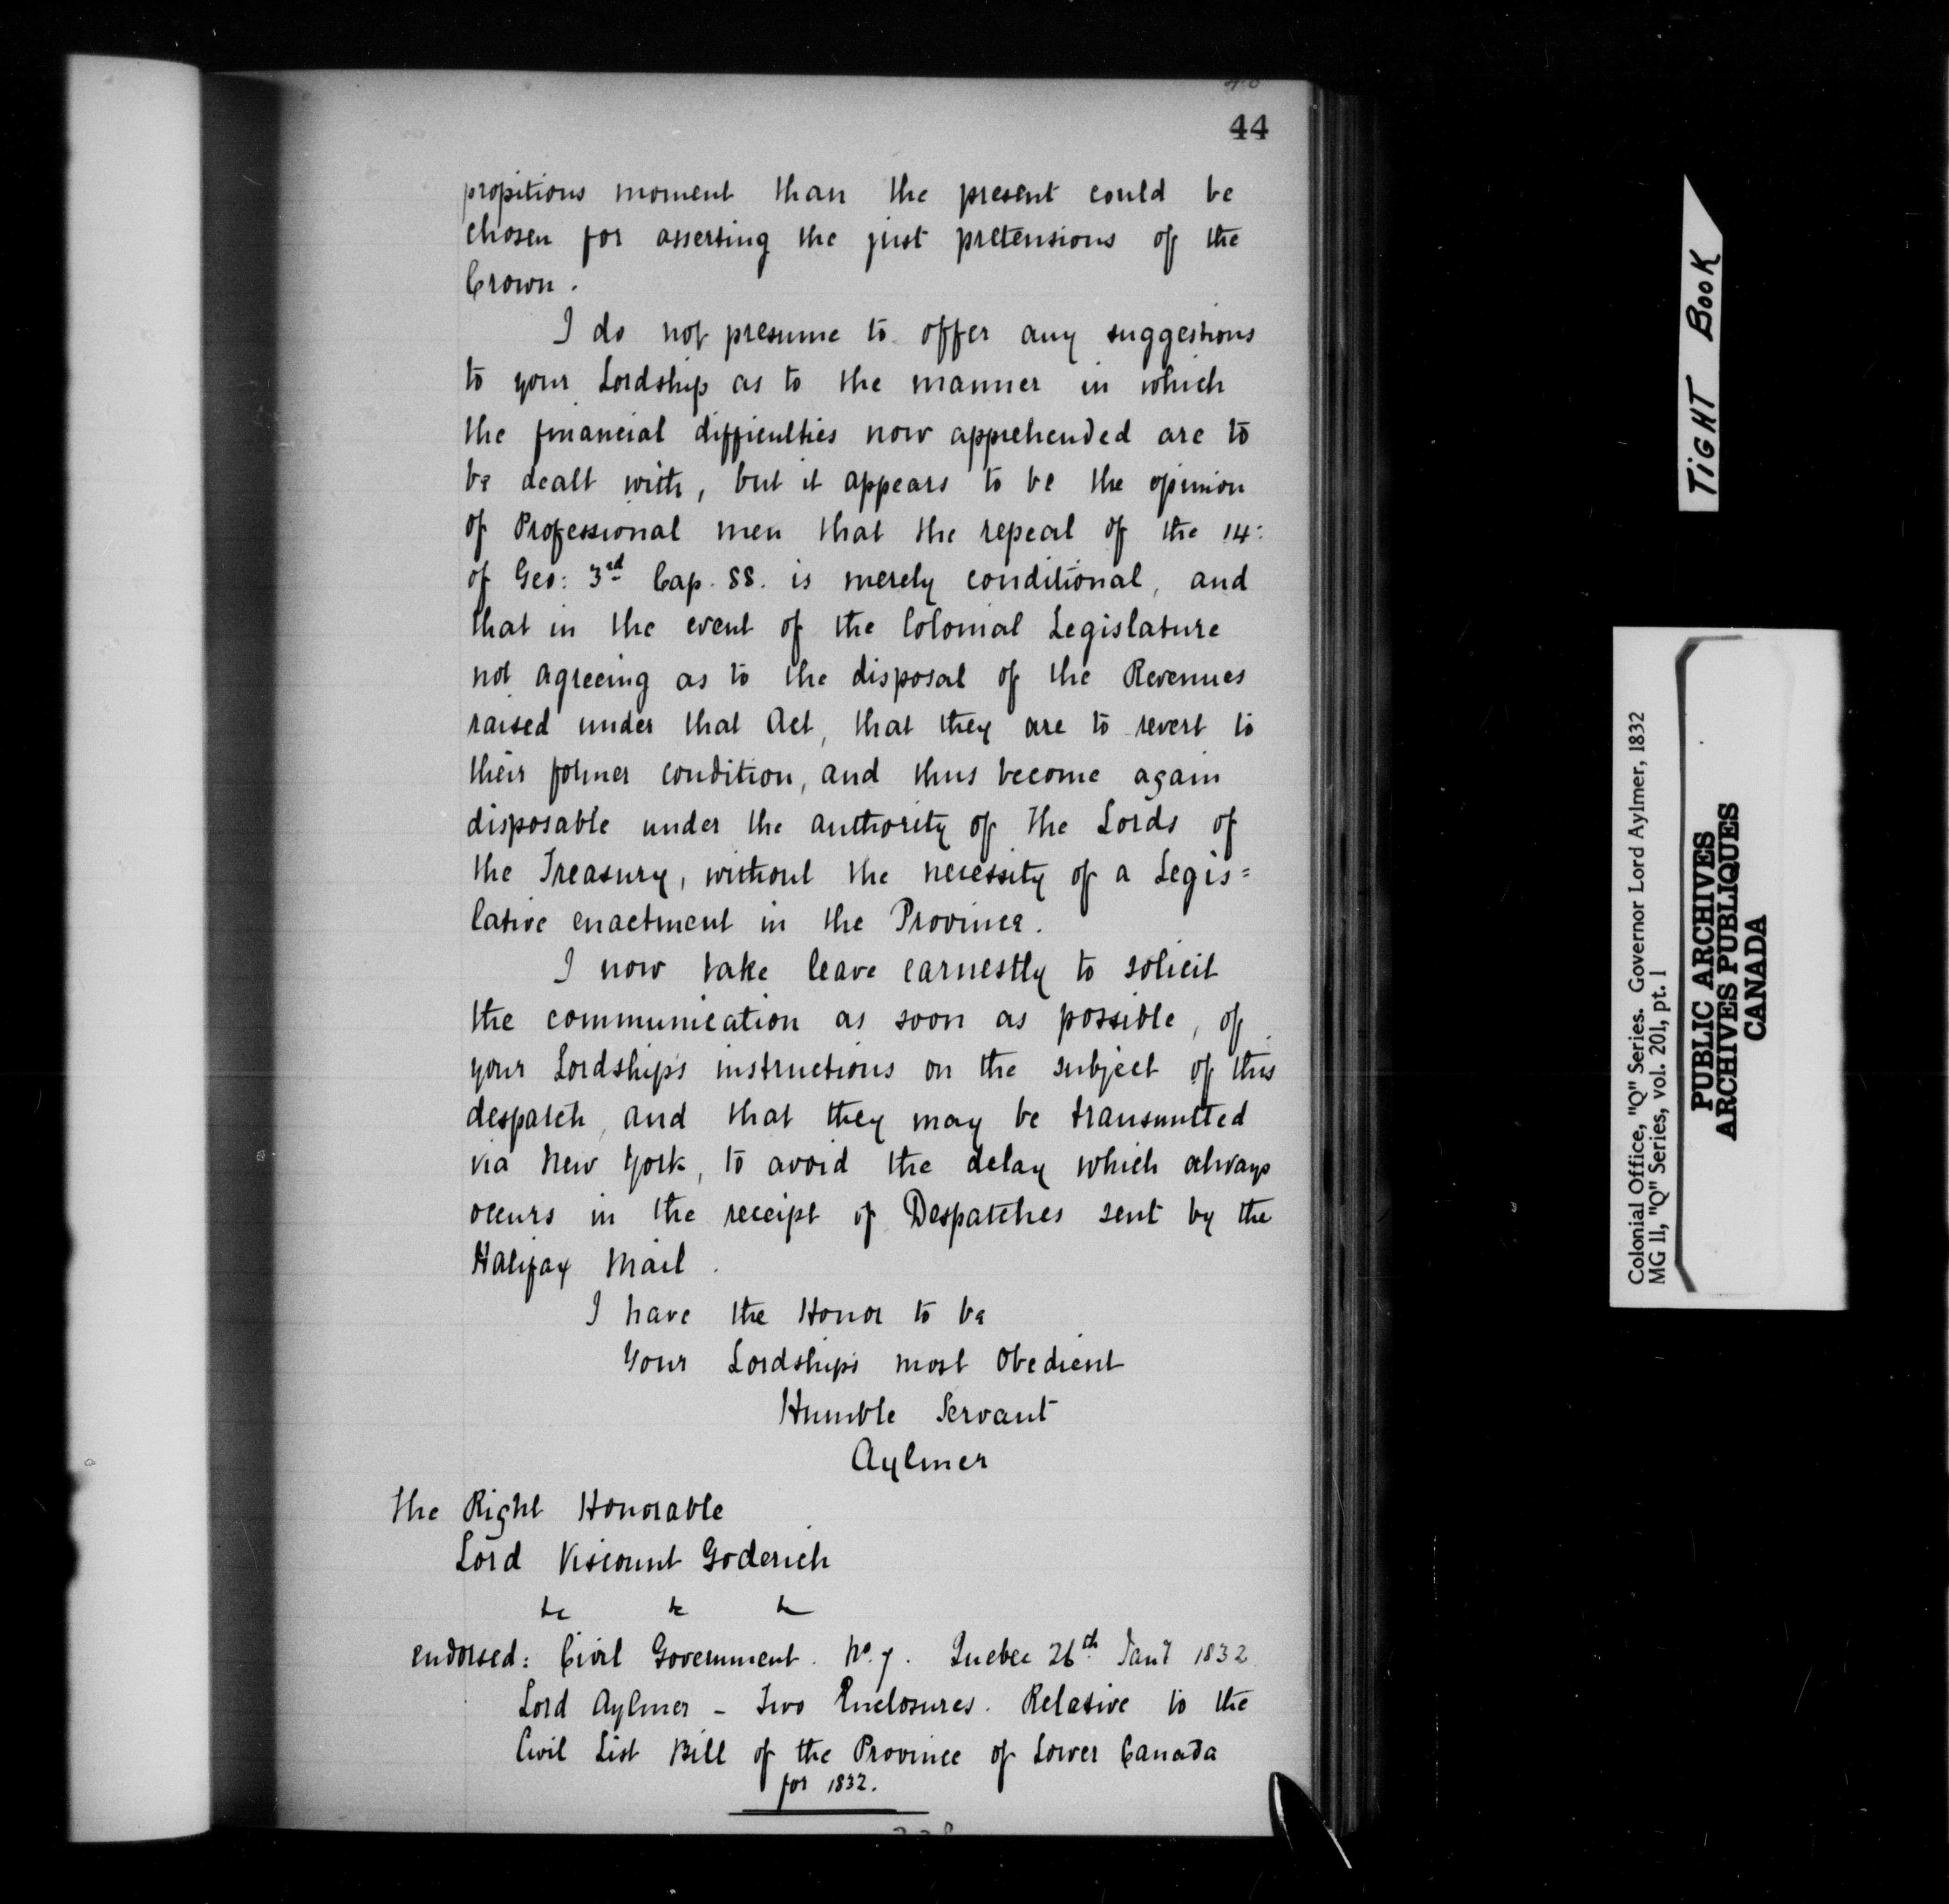 44
propitious moment than the present could be
chosen for asserting the just pretensions of the
Crown.
I do not presume to offer any suggestions
to your Lordship as to the manner in which
the financial difficulties now apprehended are to
be dealt with, but it appears to be the opinion
of Professional men that the repeal of the 14:
of Geo: 3rd Cap. 88. is merely conditional, and
that in the event of the Colonial Legislature
not agreeing as to the disposal of the Revenues
raised under that Act, that they are to revert to
their former condition, and thus become again
disposable under the authority of the Lords of
the Treasury, without the necessity of a Legis=
lative enactment in the Province.
I now take leave earnestly to solicit
the communication as soon as possible, of
your Lordship's instructions on the subject of this
despatch, and that they may be transmitted
via New York, to avoid the delay which always
occurs in the receipt of Despatches sent by the
Halifax Mail.
I have the Honor to be
Your Lordships most Obedient
Humble Servant
Aylmer
The Right Honorable
Lord Viscount Goderich
&c &c &c
endorsed: Civil Government. No. 7. Quebec 26th Jany 1832
Lord Aylmer - Two Enclosures. Relative to the
Civil List Bill of the Province of Lower Canada
for 1832.
TIGHT BOOK
Colonial Office, "Q" Series. Governor Lord Aylmer, 1832
MG 11, "Q" Series, vol. 201, pt. 1
PUBLIC ARCHIVES
ARCHIVES PUBLIQUES
CANADA